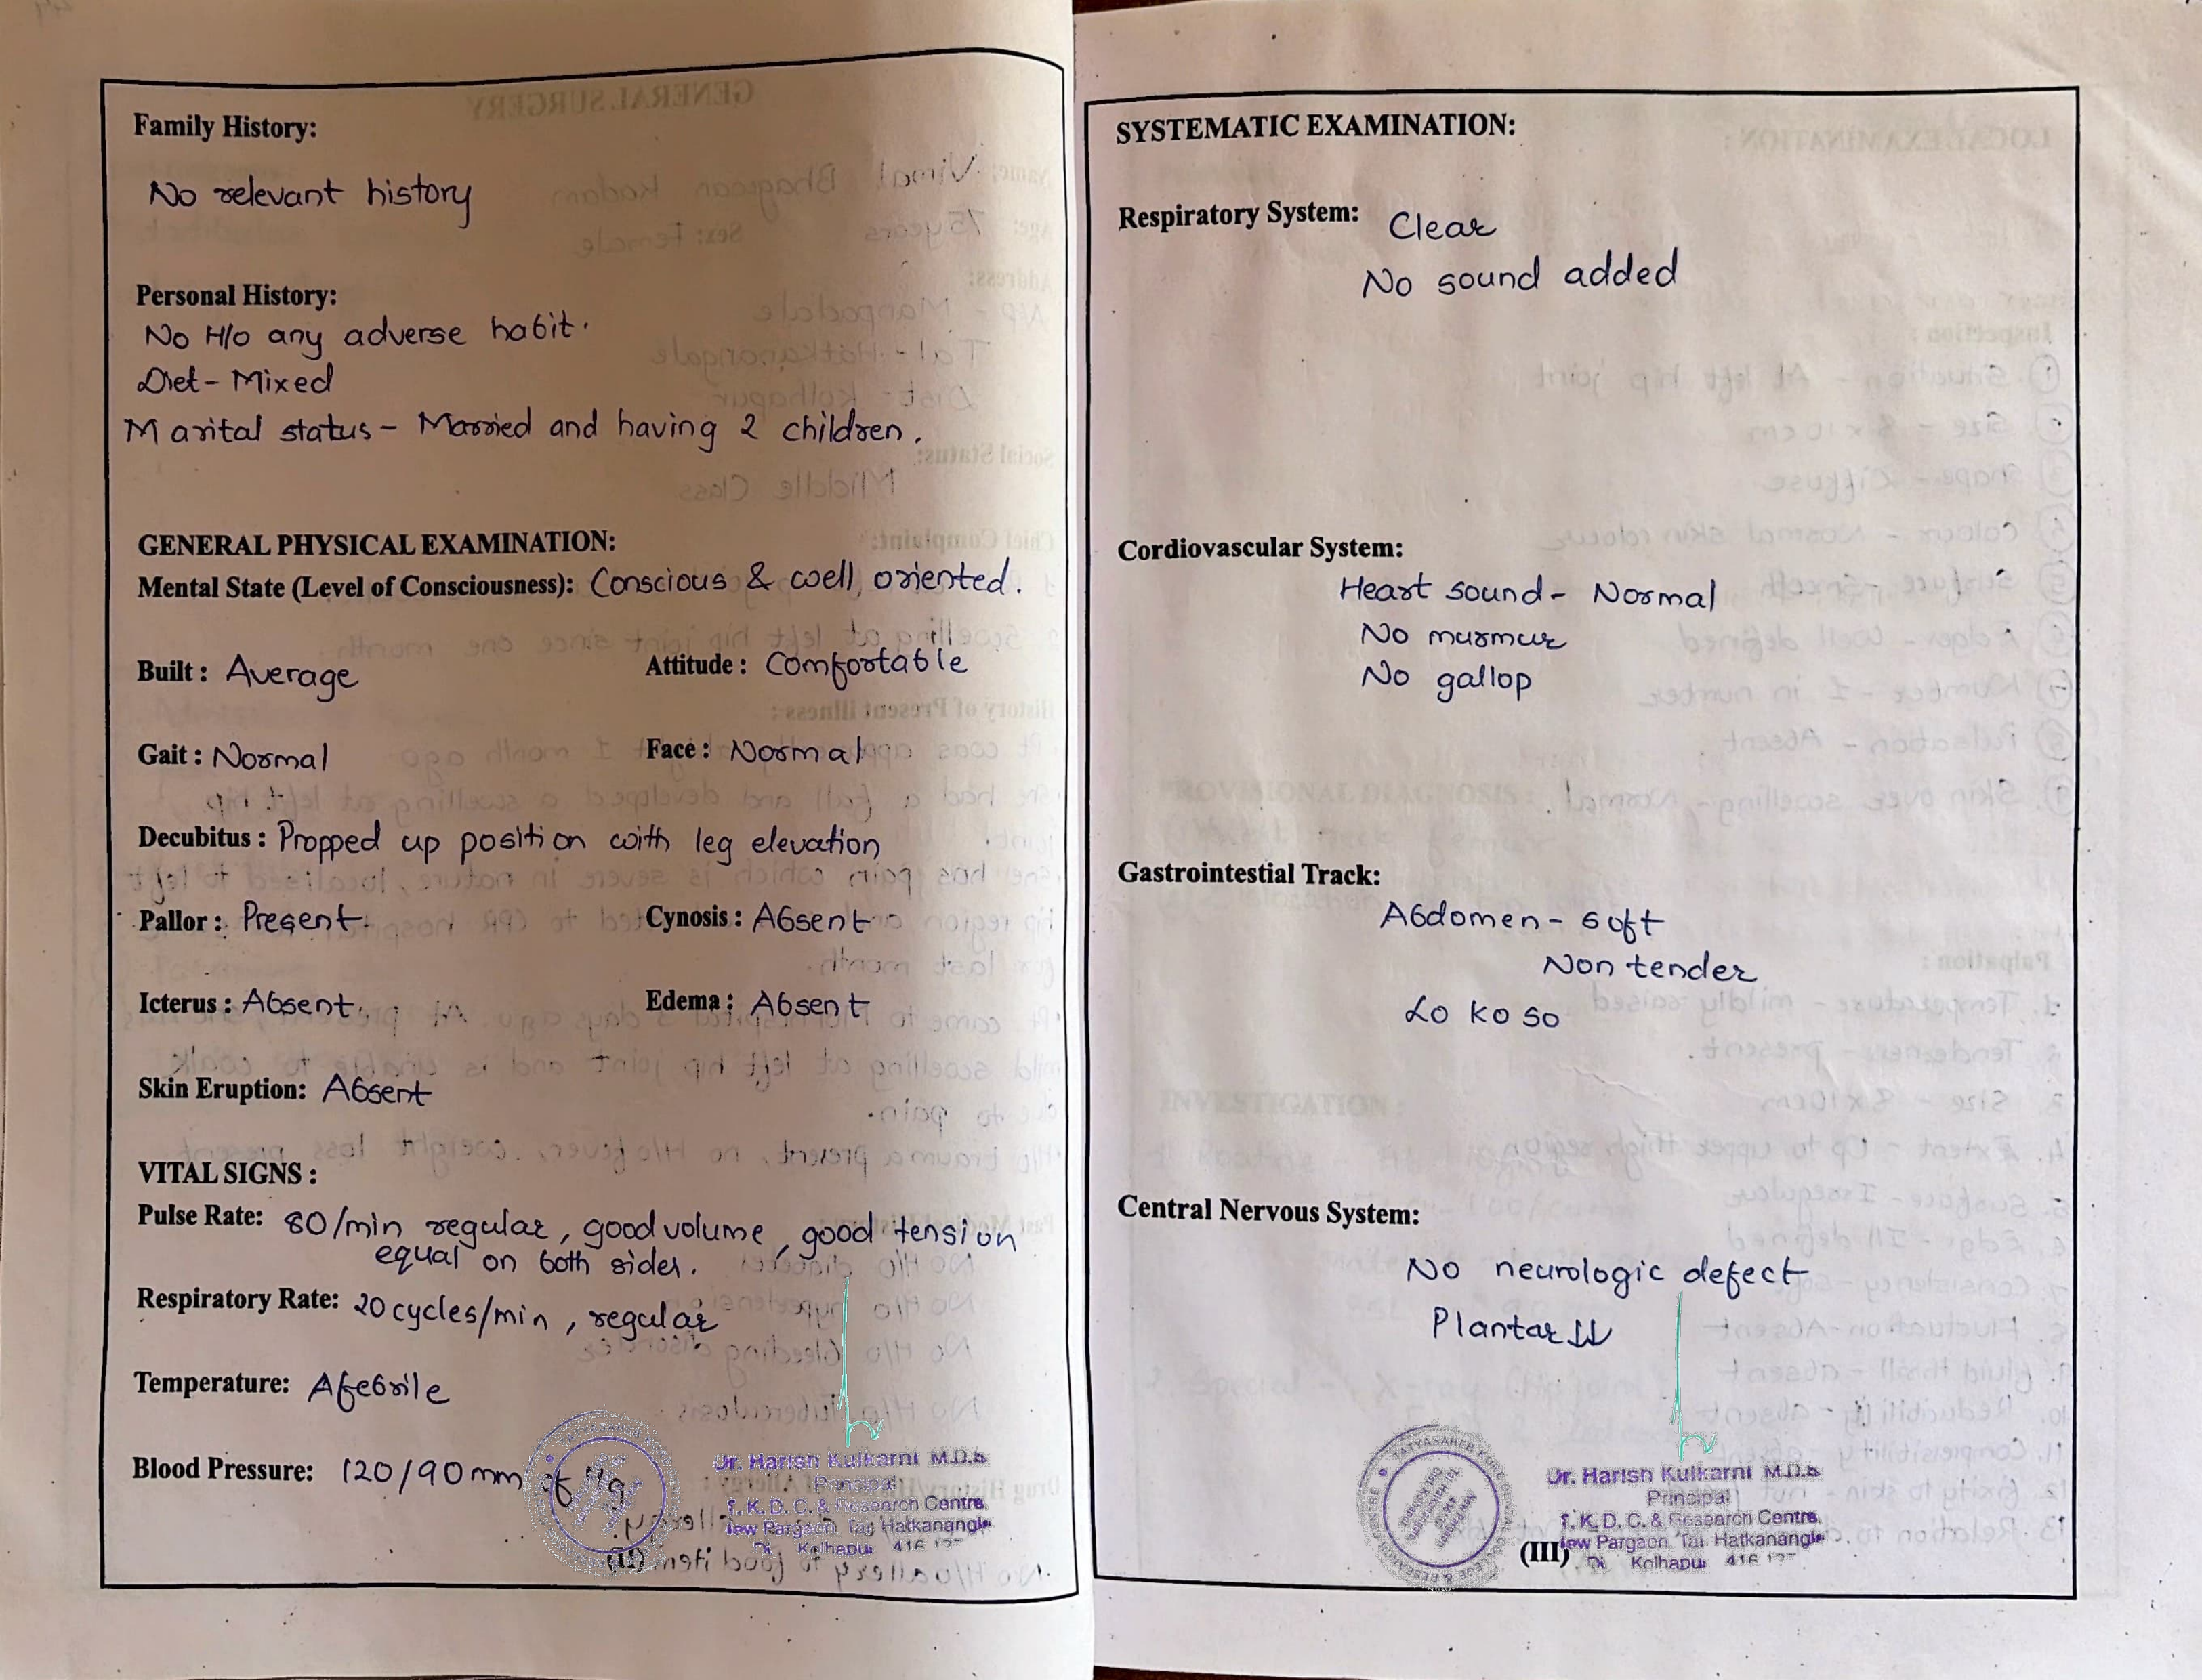 Family History:
No relevant history
Personal History:
No H/o any adverse habit.
Diet - Mixed
Marital status - Married and having 2 children.
GENERAL PHYSICAL EXAMINATION:
Mental State (Level of Consciousness): Conscious & well oriented.
Built : Average Attitude : Comfortable
Gait : Normal Face : Normal
Decubitus : Propped up position with leg elevation
Pallor : Present Cynosis : Absent
Icterus : Absent Edema : Absent
Skin Eruption: Absent
VITAL SIGNS :
Pulse Rate: 80/min regular, good volume, good tension
equal on both sides.
Respiratory Rate: 20 cycles/min, regular
Temperature: Afebrile
Blood Pressure: 120/90 mm of Hg
Dr. Harish Kulkarni M.D.S
Principal
T. K. D. C. & Research Centre,
New Pargaon Tal Hatkanangle
Di. Kolhapur 416
(II)
SYSTEMATIC EXAMINATION:
Respiratory System: Clear
No sound added
Cordiovascular System:
Heart sound - Normal
No murmur
No gallop
Gastrointestial Track:
Abdomen - soft
Non tender
Lo Ko So
Central Nervous System:
No neurologic defect
Plantar ↓↓
TATYASAHEB KORE DENTAL COLLEGE & RESEARCH CENTRE
Dr. Harish Kulkarni M.D.S
Principal
T. K. D. C. & Research Centre,
New Pargaon Tal. Hatkanangle
Di. Kolhapur 416
(III)